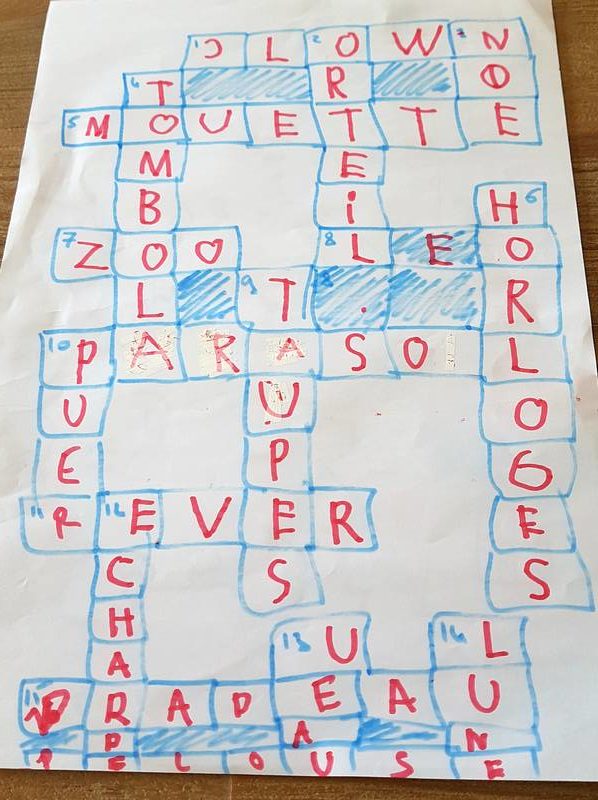 1 C L 2 O W 3 N
4 T R O
5 M O U E T T E
M E
B i H 6
7 Z O O 8 L E O
L 9 T R
10 P A R A S O L
U U O
E P G
11 R 12 E V E R E
C S S
H 13 U 14 L
A
15 R A D E A U
P A N
P E L O U S E